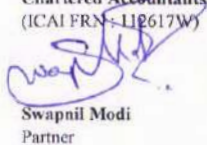 Chartered Accountants
(ICAI FRN: 112617W)
Swapnil Modi
Partner